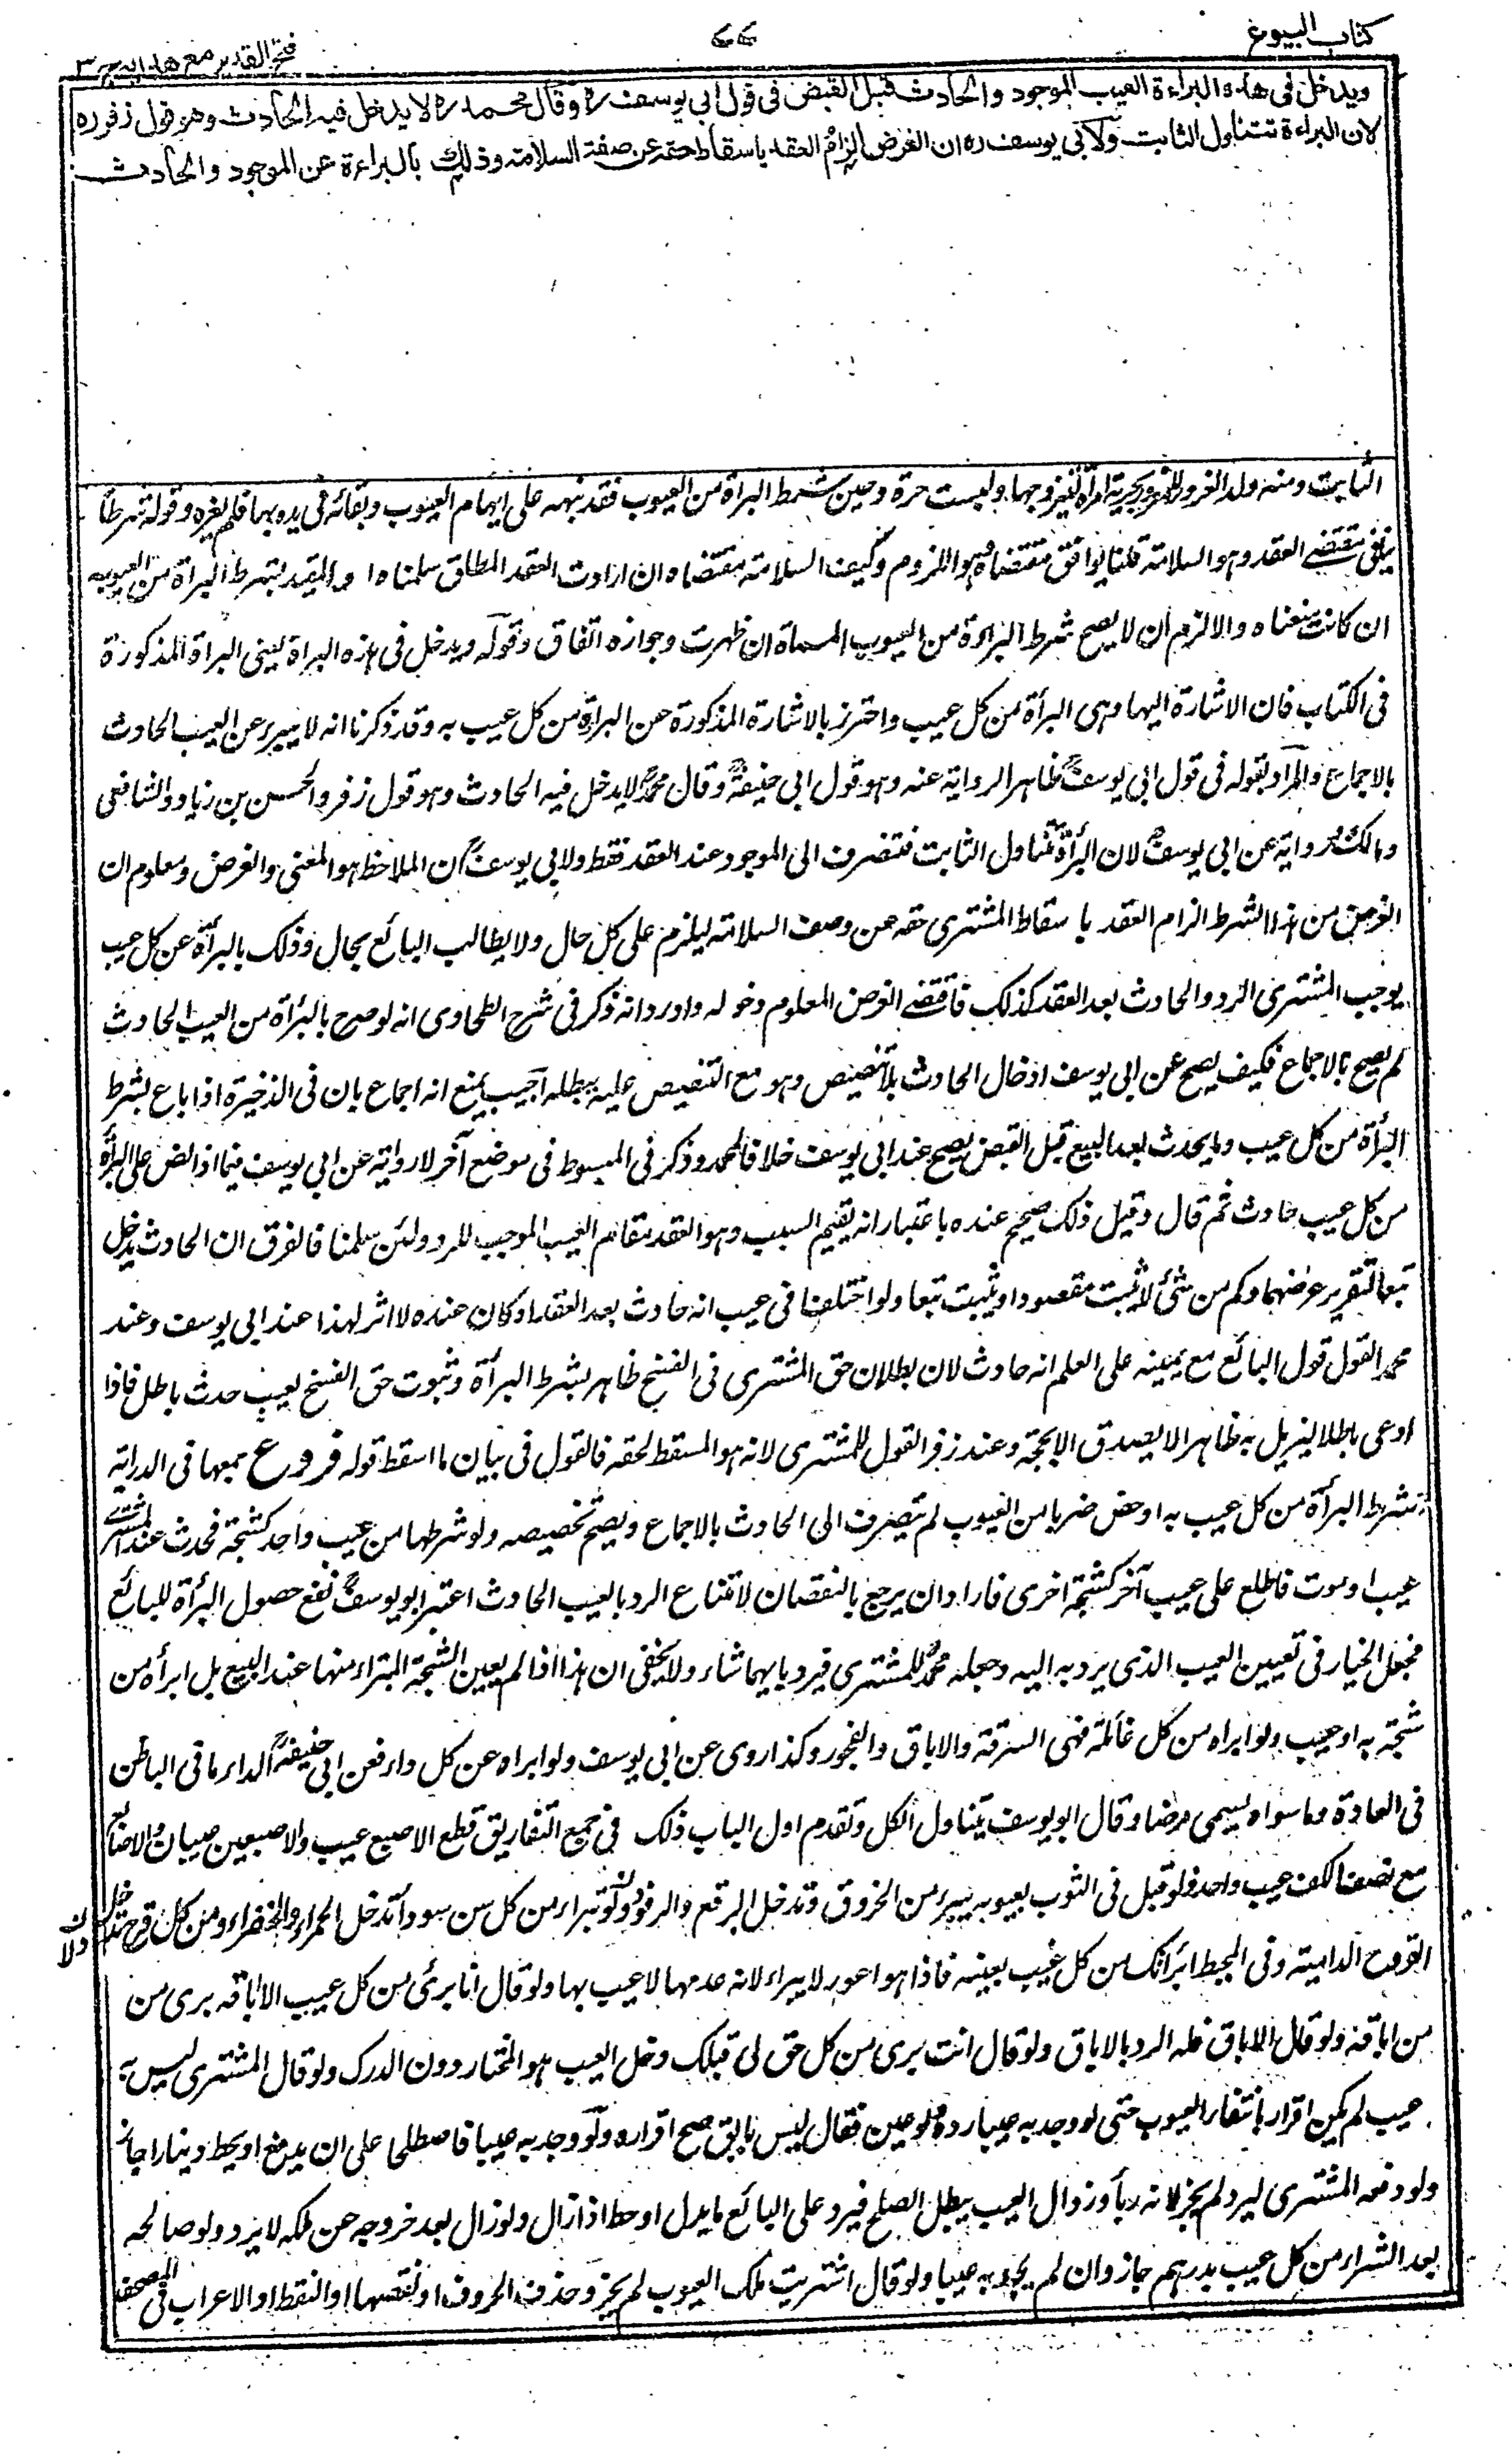 كتاب البيوع
٧٧
فتح القدير مع هدايه ج ٣
ويدخل فى هذه البراءة العيب الموجود والحادث قبل القبض فى قول ابى يوسف ره وقال محمد ره لا يدخل فيه الحادث وهو قول زفر ره
لان البراءة تتناول الثابت ولابى يوسف ره ان الغرض الزام العقد باسقاط حقه عن صفة السلامة وذلك بالبراءة عن الموجود والحادث
الثابت ومنه ولد المغرور للغرور بحرية امرأة ليزوجها وليست حرة وحين شرط البراة من العيوب فقد نبهه على ابهام العيوب وبقائه فى يده بها فلم يغره وقوله شرطا
ينافى مقتضى العقد وهو السلامة قلنا يوافق مقتضاه وهو اللزوم وكيف السلامة مقتضاه ان ارادت العقد المطلق سلمناه او المقيد بشرط البراة من العيوب
ان كانت منعناه والا لزم ان لا يصح شرط البراءة من العيوب المسماة ان ظهرت وجوازه اتفاق وقوله ويدخل فى هذه البراة يعنى البراة المذكورة
فى الكتاب فان الاشارة اليها وهى البرأة من كل عيب واحترز بالاشارة المذكورة عن البراة من كل عيب به وقد ذكرنا انه لا يبرء عن العيب الحادث
بالاجماع والمراد بقوله فى قول ابى يوسف ظاهر الرواية عنه وهو قول ابى حنيفة وقال محمد لا يدخل فيه الحادث وهو قول زفر والحسن بن زياد والشافعى
ومالك ورواية عن ابى يوسف لان البرأة تتناول الثابت فتنصرف الى الموجود عند العقد فقط ولابى يوسف ان الملاحظ هو المعنى والغرض ومعلوم ان
الغرض من هذا الشرط الزام العقد باسقاط المشترى حقه عن وصف السلامة ليلزم على كل حال ولا يطالب البائع بحال وذلك بالبرأة عن كل عيب
يوجب المشترى الرد والحادث بعد العقد كذلك فاقتضى الغرض المعلوم دخوله واورد انه ذكر فى شرح الطحاوى انه لو صرح بالبرأة من العيب الحادث
لم يصح بالاجماع فكيف يصح عن ابى يوسف ادخال الحادث بلا تنصيص وهو مع التنصيص عليه يبطله اجيب بمنع انه اجماع بان فى الذخيرة اذا باع بشرط
البرأة من كل عيب وما يحدث بعد البيع قبل القبض يصح عند ابى يوسف خلافا لمحمد وذكر فى المبسوط فى موضع آخر لا رواية عن ابى يوسف فيما اذا نص على البرأة
من كل عيب حادث ثم قال وقيل ذلك صحيح عنده باعتبار انه يقيم السبب وهو العقد مقام العيب الموجب للرد ولئن سلمنا فالفرق ان الحادث يدخل
تبعا لتقرير غرضهما وكم من شئ لا يثبت مقصودا ويثبت تبعا ولو اختلفا فى عيب انه حادث بعد العقد او كان عنده لا اثر لهذا عند ابى يوسف وعند
محمد القول قول البائع مع يمينه على العلم انه حادث لان بطلان حق المشترى فى الفسخ ظاهر بشرط البرأة وثبوت حق الفسخ بعيب حدث باطل فاذا
ادعى باطلا ليزيل به ظاهرا لا يصدق الا بحجة وعند زفر القول للمشترى لانه هو المسقط لحقه فالقول فى بيان ما اسقط قوله فروع جمعها فى الدراية
شرط البرأة من كل عيب به او خص ضربا من العيوب لم تنصرف الى الحادث بالاجماع ويصح تخصيصه ولو شرطها من عيب واحد كشجة فحدث عند المشترى
عيب او موت فاطلع على عيب آخر كشجة اخرى فاراد ان يرجع بالنقصان لامتناع الرد بالعيب الحادث اعتبر ابو يوسف نفع حصول البرأة للبائع
فجعل الخيار فى تعيين العيب الذى يرد به اليه وجعله محمد للمشترى فيرد بايهما شاء ولا يخفى ان هذا اذا لم يعين الشجة المتبراء منها عند البيع بل ابرأه من
شجة به او عيب ولو ابراه من كل غائلة فهى السرقة والاباق والفجور وكذا روى عن ابى يوسف ولو ابراه عن كل داء فعن ابى حنيفة الداء ما فى الباطن
فى العادة وما سواه يسمى مرضا وقال ابو يوسف يتناول الكل وتقدم اول الباب ذلك فى جمع التفاريق قطع الاصبع عيب والاصبعين عيبان والاصابع
مع نصف الكف عيب واحد ولو قبل فى الثوب بعيوبه يبرء من الخروق وتدخل الرقع والرفو ولو تبراء من كل سن سوداء تدخل الحمراء والخضراء ومن كل قرح تدخل
القروح الدامية وفى المحيط ابرأتك من كل عيب بعينه فاذا هو اعور لا يبراء لانه عدمها لا عيب بها ولو قال انا برئ من كل عيب الا اباقه برى من
من اباقه ولو قال الا اباق فله الرد بالاباق ولو قال انت برى من كل حق لى قبلك دخل العيب هو المختار دون الدرك ولو قال المشترى ليس به
عيب لم يكن اقرارا بانتفاء العيوب حتى لو وجد به عيبا رده ولو عين فقال ليس بآبق صح اقراره ولو وجد به عيبا فاصطلحا على ان يدفع او يحط دينارا جاز
ولو دفعه المشترى ليرد لم يجز لانه ربا وزوال العيب يبطل الصلح فيرد على البائع ما بدل او حط اذا زال ولو زال بعد خروجه عن ملكه لا يرد ولو صالحه
بعد الشراء من كل عيب بدرهم جاز وان لم يجد به عيبا ولو قال اشتريت ملك العيوب لم يجز وحذف الحروف او نقصها او النقط او الاعراب فى المصحف